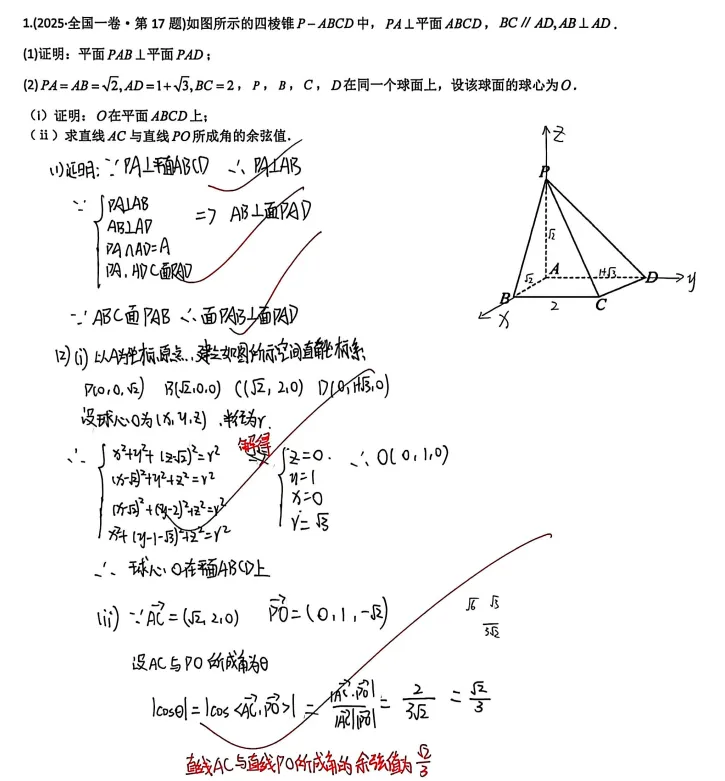 1.(2025·全国一卷·第 17 题)如图所示的四棱锥 P－ABCD 中，PA⊥平面 ABCD，BC∥AD,AB⊥AD．
(1)证明：平面 PAB⊥平面 PAD；
(2) PA＝AB＝√2,AD＝1＋√3,BC＝2，P，B，C，D 在同一个球面上，设该球面的球心为 O．
（i）证明：O 在平面 ABCD 上；
（ii）求直线 AC 与直线 PO 所成角的余弦值.
(1)证明：∵PA⊥平面ABCD ∴PA⊥AB
∵ { PA⊥AB
AB⊥AD
PA∩AD=A
PA,ADC面PAD
=> AB⊥面PAD
∵ABC面PAB ∴面PAB⊥面PAD
z
P
√2
√2
A
1+√3
D
y
B
x
2
C
(2)(i) 以A为坐标原点，建立如图所示空间直角坐标系
P(0,0,√2) B(√2,0,0) C(√2,2,0) D(0,1+√3,0)
设球心O为(x,y,z)，半径为r.
∴ { x²+y²+(z-√2)²=r²
(x-√2)²+y²+z²=r²
(x-√2)²+(y-2)²+z²=r²
x²+(y-1-√3)²+z²=r²
解得
=> { z=0.
y=1
x=0
r=√3
∴O(0,1,0)
∴ 球心O在平面ABCD上
(ii) ∵AC→=(√2,2,0) PO→=(0,1,-√2)
√6 √3
3√2
设AC与PO所成角为θ
|cosθ|=|cos<AC→,PO→>|=|AC→·PO→|/|AC→||PO→|=2/3√2=√2/3
直线AC与直线PO所成角的余弦值为√2/3